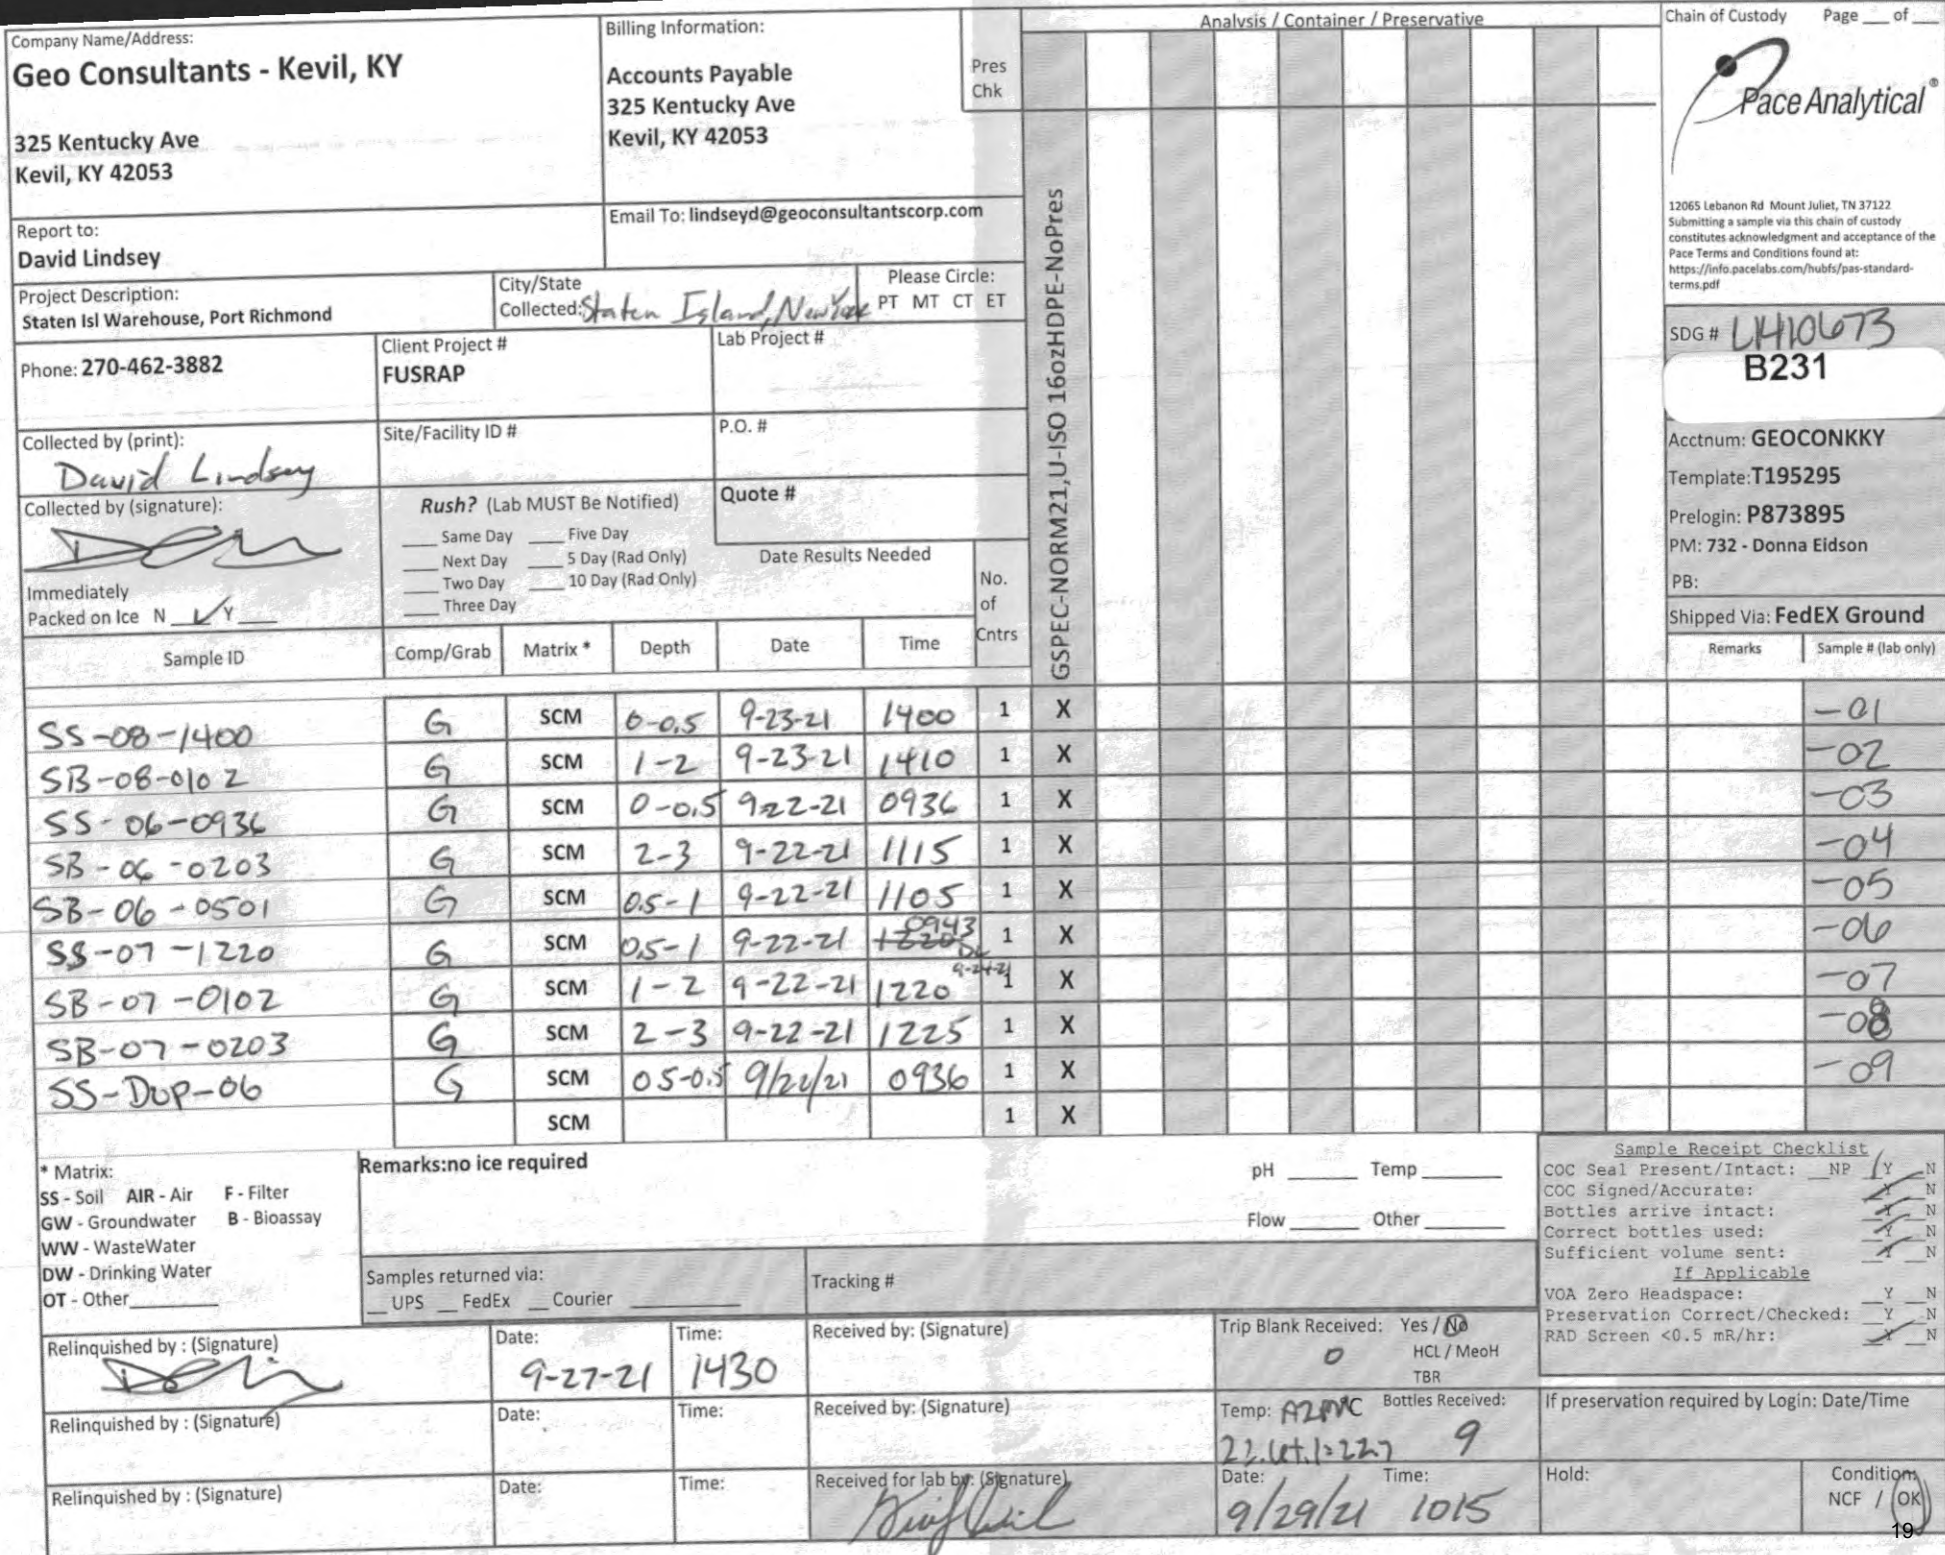 Company Name/Address:
Geo Consultants - Kevil, KY
325 Kentucky Ave
Kevil, KY 42053
Billing Information:
Accounts Payable
325 Kentucky Ave
Kevil, KY 42053
Pres
Chk
Analysis / Container / Preservative
Chain of Custody Page ___ of ___
Pace Analytical®
12065 Lebanon Rd Mount Juliet, TN 37122
Submitting a sample via this chain of custody
constitutes acknowledgment and acceptance of the
Pace Terms and Conditions found at:
https://info.pacelabs.com/hubfs/pas-standard-
terms.pdf
Report to:
David Lindsey
Email To: lindseyd@geoconsultantscorp.com
Project Description:
Staten Isl Warehouse, Port Richmond
City/State
Collected: Staten Island, New York
Please Circle:
PT MT CT ET
Phone: 270-462-3882
Client Project #
FUSRAP
Lab Project #
SDG # L1410673
B231
Collected by (print):
David Lindsey
Site/Facility ID #
P.O. #
Acctnum: GEOCONKKY
Template: T195295
Prelogin: P873895
PM: 732 - Donna Eidson
PB:
Shipped Via: FedEX Ground
Collected by (signature):
Rush? (Lab MUST Be Notified)
___ Same Day ___ Five Day
___ Next Day ___ 5 Day (Rad Only)
___ Two Day ___ 10 Day (Rad Only)
___ Three Day
Quote #
Date Results Needed
Immediately
Packed on Ice N ___ Y ___
No.
of
Cntrs
GSPEC-NORM21,U-ISO 16ozHDPE-NoPres
Sample ID Comp/Grab Matrix * Depth Date Time Remarks Sample # (lab only)
SS-08-1400 G SCM 0-0.5 9-23-21 1400 1 X -01
SB-08-0102 G SCM 1-2 9-23-21 1410 1 X -02
SS-06-0936 G SCM 0-0.5 9-22-21 0936 1 X -03
SB-06-0203 G SCM 2-3 9-22-21 1115 1 X -04
SB-06-0501 G SCM 0.5-1 9-22-21 1105 1 X -05
SS-07-1220 G SCM 0.5-1 9-22-21 1220 0943 DL 9-24-21 1 X -06
SB-07-0102 G SCM 1-2 9-22-21 1220 1 X -07
SB-07-0203 G SCM 2-3 9-22-21 1225 1 X -08
SS-DUP-06 G SCM 05-0.5 9/22/21 0936 1 X -09
SCM 1 X
* Matrix:
SS - Soil AIR - Air F - Filter
GW - Groundwater B - Bioassay
WW - WasteWater
DW - Drinking Water
OT - Other
Remarks:no ice required
pH ______ Temp ______
Flow ______ Other ______
Samples returned via:
__ UPS __ FedEx __ Courier
Tracking #
Sample Receipt Checklist
COC Seal Present/Intact: __NP Y __N
COC Signed/Accurate: Y __N
Bottles arrive intact: Y __N
Correct bottles used: Y __N
Sufficient volume sent: Y __N
If Applicable
VOA Zero Headspace: __Y __N
Preservation Correct/Checked: __Y __N
RAD Screen <0.5 mR/hr: Y __N
Relinquished by : (Signature)
Date:
9-27-21
Time:
1430
Received by: (Signature)
Trip Blank Received: Yes / No
0 HCL / MeoH
TBR
Relinquished by : (Signature)
Date:
Time:
Received by: (Signature)
Temp: °C Bottles Received:
9
If preservation required by Login: Date/Time
Relinquished by : (Signature)
Date:
Time:
Received for lab by: (Signature)
Date: Time:
9/29/21 1015
Hold:
Condition:
NCF / OK
19